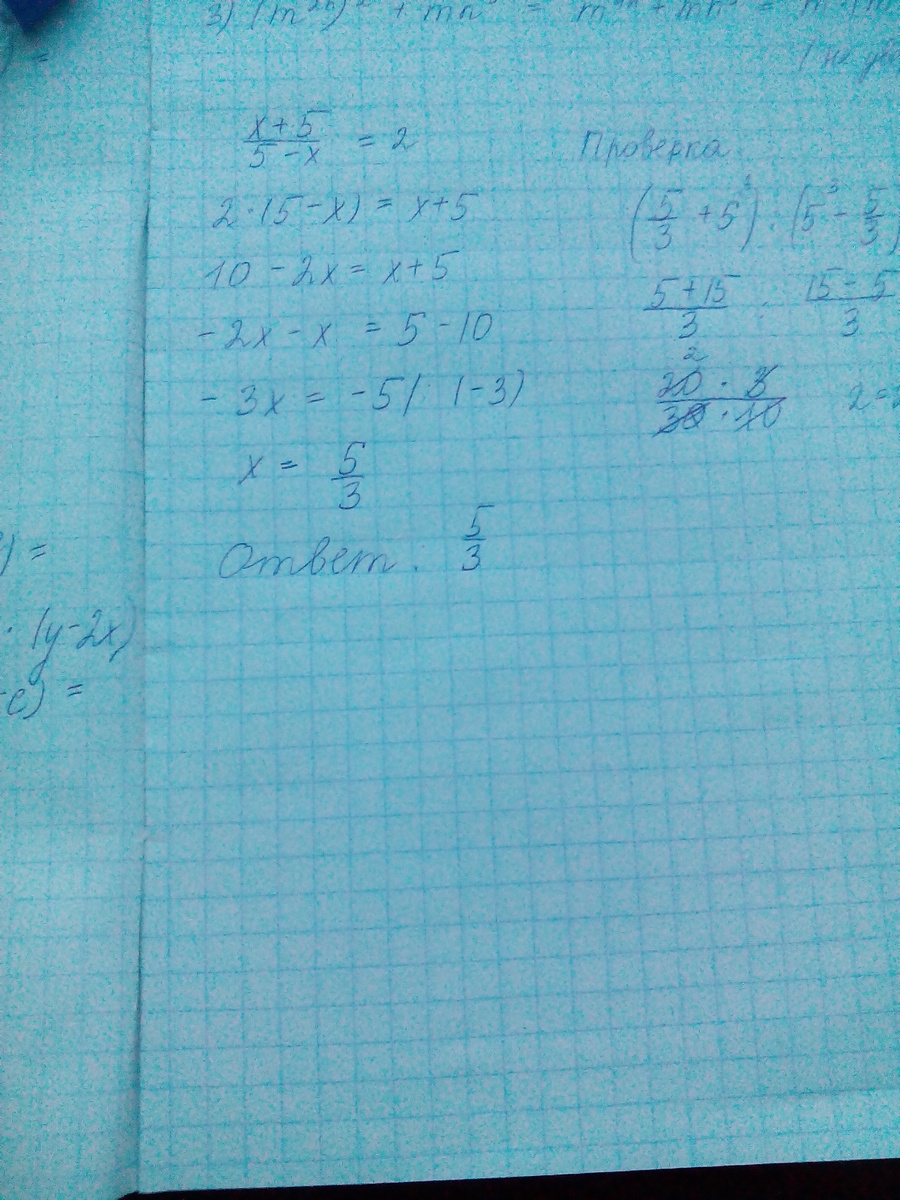 3) (m²ⁿ)² + mn³ = m⁴ⁿ + mn³ =
) =
x+5/5-x = 2
2·(5-x) = x+5
10 - 2x = x+5
-2x - x = 5 - 10
-3x = -5 | : (-3)
x = 5/3
Ответ: 5/3
Проверка
(5/3 + 5³) : (5³ - 5/3)
5+15/3 : 15-5/3
2
20·3/30·10 2=2
) =
· (y-2x)
-c) =